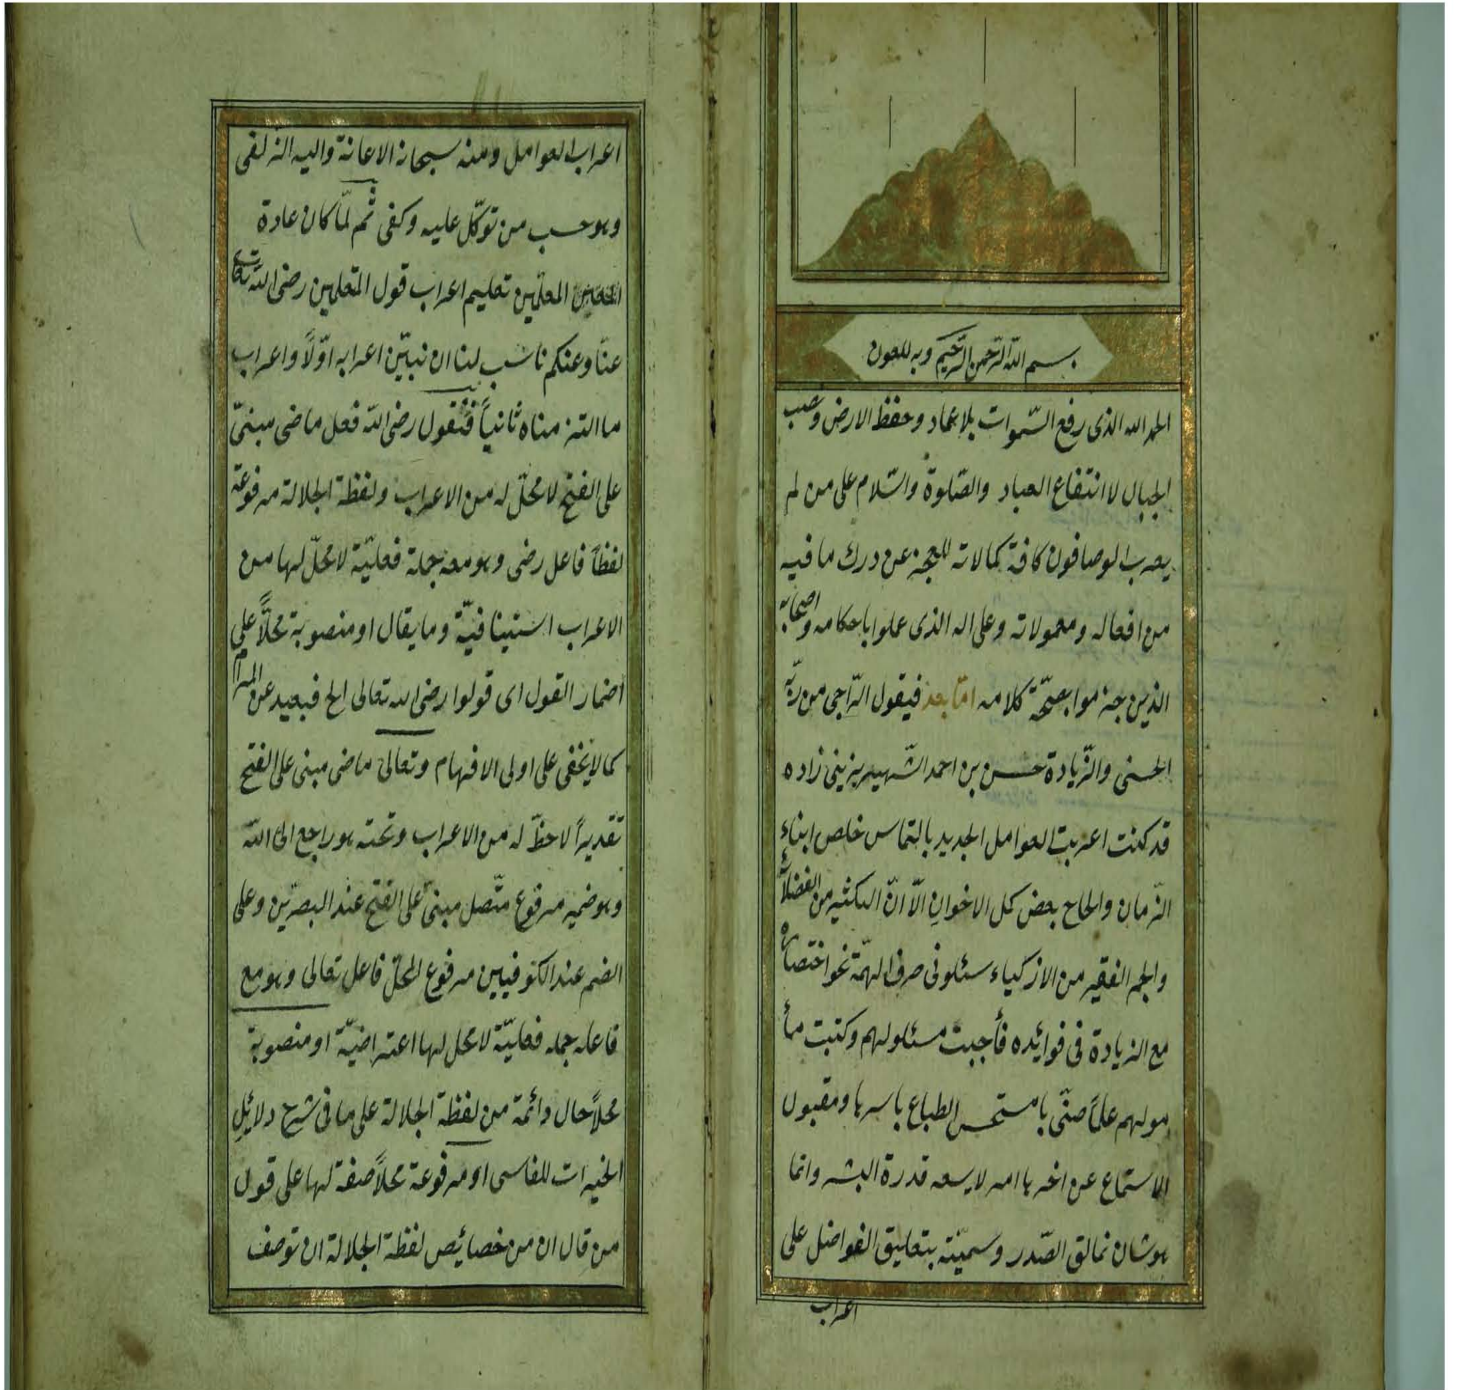 بسم الله الرحمن الرحيم وبه للعون
الحمد لله الذى رفع السّموات بلا عماد وحفظ الارض ونصب
الجبال لا انتفاع العباد والصّلوة والسّلام على من لم
يعرب الوصافون كافة كمالاته للعجز عن درك ما فيه
من افعاله ومعمولاته وعلى اله الذى عملوا باحكامه واصحابه
الذين جزموا بصحّة كلامه امّا بعد فيقول الرّاجى من ربّه
الحسنى والزّيادة حسن بن احمد الشّهير بزينى زاده
قد كنت اعربت العوامل الجديد بالتماس خلص ابناء
الزّمان والحاح بعض كمل الاخوان الّا انّ الكثير من الفضلاء
والجم الفقير من الازكياء سئلونى صرف الهمّة نحو اختصاره
مع الزيادة فى فوائده فأجبت مسئولهم وكتبت مأ
مولهم علماً منّى بامستحسن الطباع باسرها ومقبول
الاستماع عن اخرها امر لا يسعه قدرة البشر وانما
هو شان خالق الصّدر وسميّته بتعليق الفواضل على
اعراب
اعراب العوامل ومنه سبحانه الاعانة واليه الزلفى
وهو حسب من توكّل عليه وكفى ثم لمّا كان عادة
المعلّمين تعليم اعراب قول المتعلمين رضى الله تعالى
عنّا وعنكم ناسب لنا ان نبيّن اعرابه اوّلاً واعراب
ما التزمناه ثانياً فنقول رضى الله فعل ماضى مبنىّ
على الفتح لا محلّ له من الاعراب ولفظة الجلالة مرفوعة
لفظاً فاعل رضى وهو معه جملة فعليّة لا محلّ لها من
الاعراب استينافيّة وما يقال او منصوبة محلّاً على
اضمار القول اى قولوا رضى الله تعالى الح فبعيد عن المرام
كما لا يخفى على اولى الافهام وتعالى ماضى مبنى على الفتح
تقديراً لا حظّ له من الاعراب وتحته هو راجع الى الله
وهو ضمير مرفوع متّصل مبنىّ على الفتح عند البصرّين وعلى
الضم عند الكوفيين مرفوع المحلّ فاعل تعالى وهو مع
فاعله جمله فعليّة لا محل لها اعتراضيّة او منصوبة
محلاً حال دائمة من لفظة الجلالة على ما فى شرح دلائل
الخيرات للفاسى او مرفوعة محلاً صفة لها على قول
من قال ان من خصائص لفظة الجلالة ان توصف